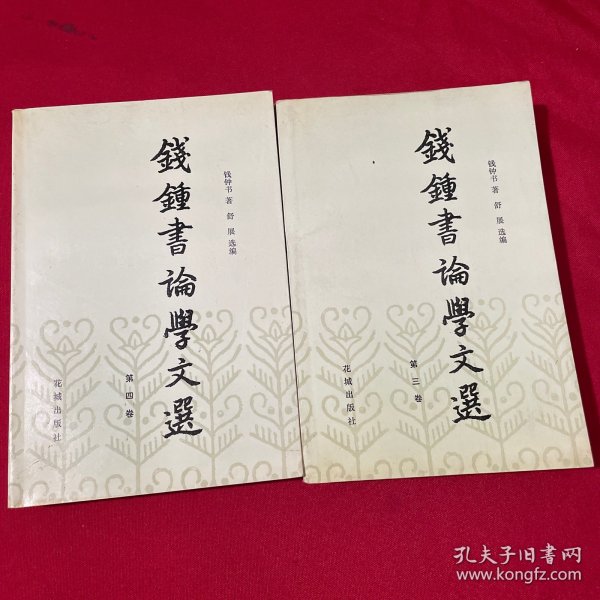 錢鍾書論學文選
钱钟书 著 舒 展 选编
第四卷
花城出版社
錢鍾書論學文選
钱钟书 著 舒 展 选编
第三卷
花城出版社
孔夫子旧书网
www.kongfz.com